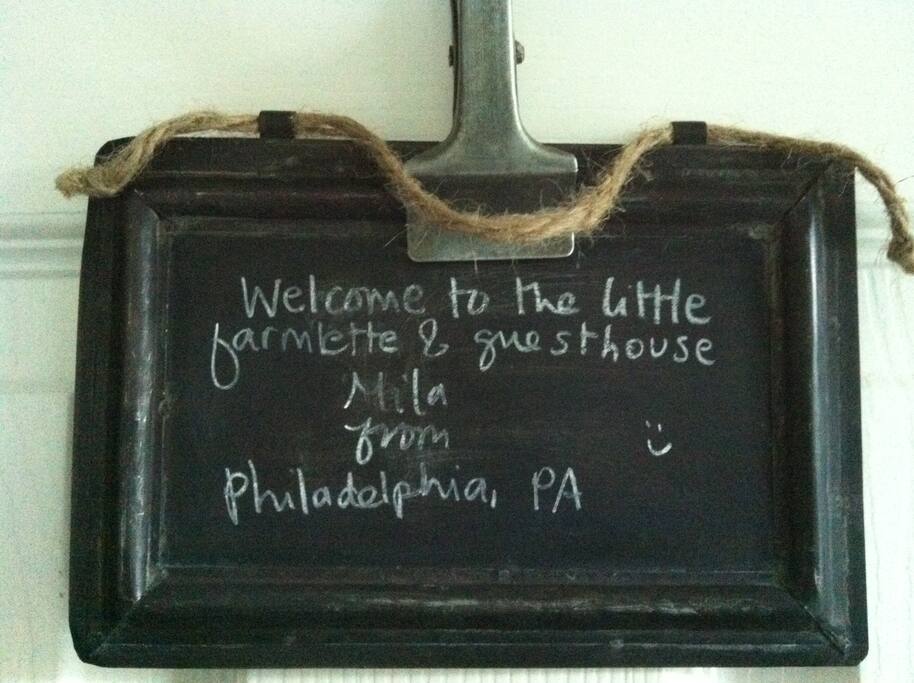 Welcome to the little
farmlette & guesthouse
Mila
from
Philadelphia, PA